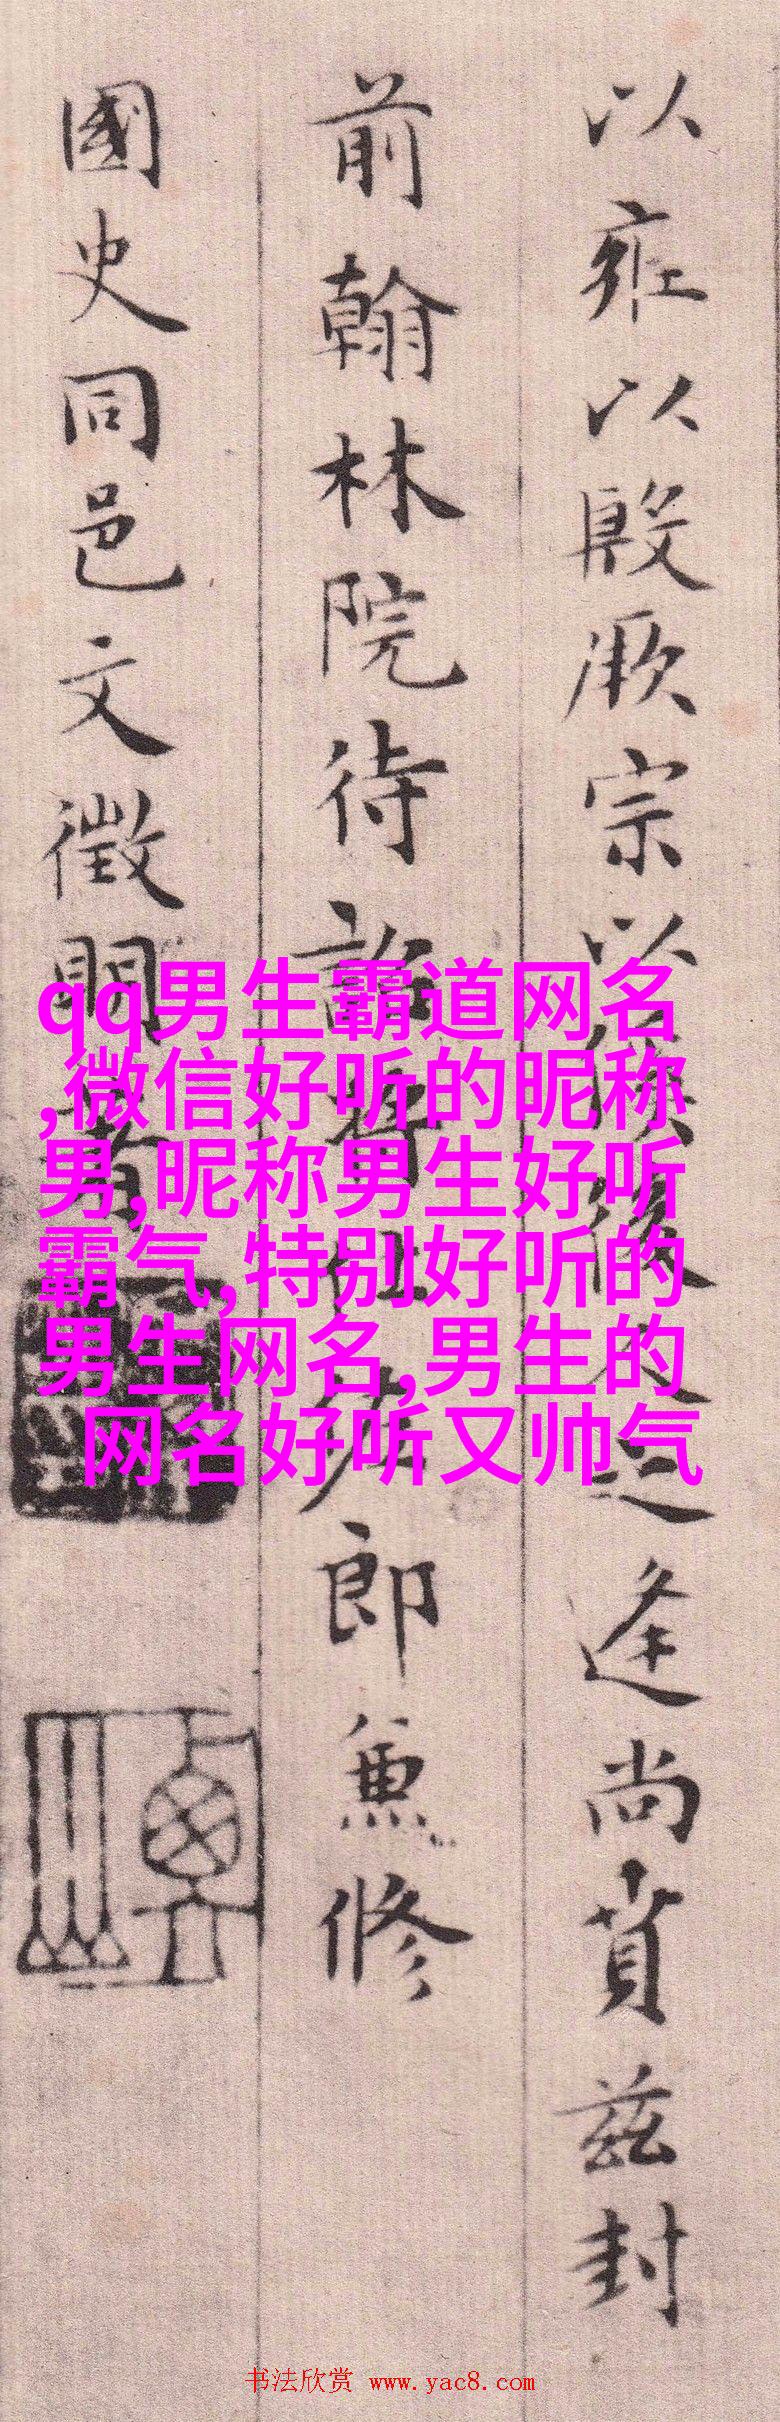 以雍以殷厥宗以俟後之逢尚賁茲封
前翰林院待詔將仕佐郎兼修
國史同邑文徵明書
qq男生霸道网名
,微信好听的昵称
男,昵称男生好听
霸气,特别好听的
男生网名,男生的
网名好听又帅气
书法欣赏 www.yac8.com